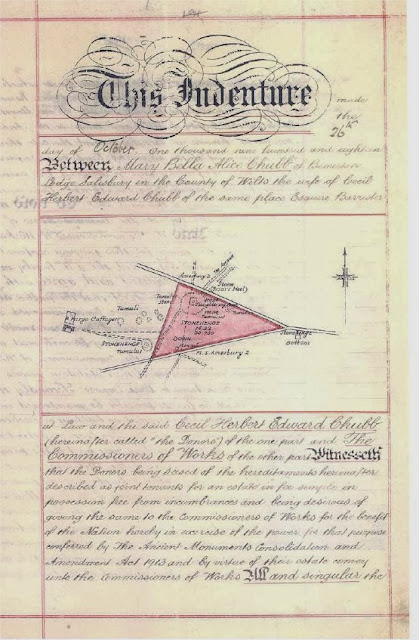 This Indenture made
the
26th
day of October One thousand nine hundred and eighteen
Between Mary Bella Alice Chubb of Bemerton
Lodge Salisbury in the County of Wilts the wife of Cecil
Herbert Edward Chubb of the same place Esquire Barrister
Amesbury 2
Stone
(Friar's Heel)
Tumuli
STONEHENGE
DOWN
STONEHENGE
Tumulus
Stonehenge
Bottom
M.S. Amesbury 2
at Law and the said Cecil Herbert Edward Chubb
(hereinafter called "the Donors") of the one part and The
Commissioners of Works of the other part Witnesseth
that the Donors being seised of the hereditaments hereinafter
described as joint tenants for an estate in fee simple in
possession free from incumbrances and being desirous of
giving the same to the Commissioners of Works for the benefit
of the Nation hereby in exercise of the power for that purpose
conferred by The Ancient Monuments Consolidation and
Amendment Act 1913 and by virtue of their estate convey
unto the Commissioners of Works All and singular the